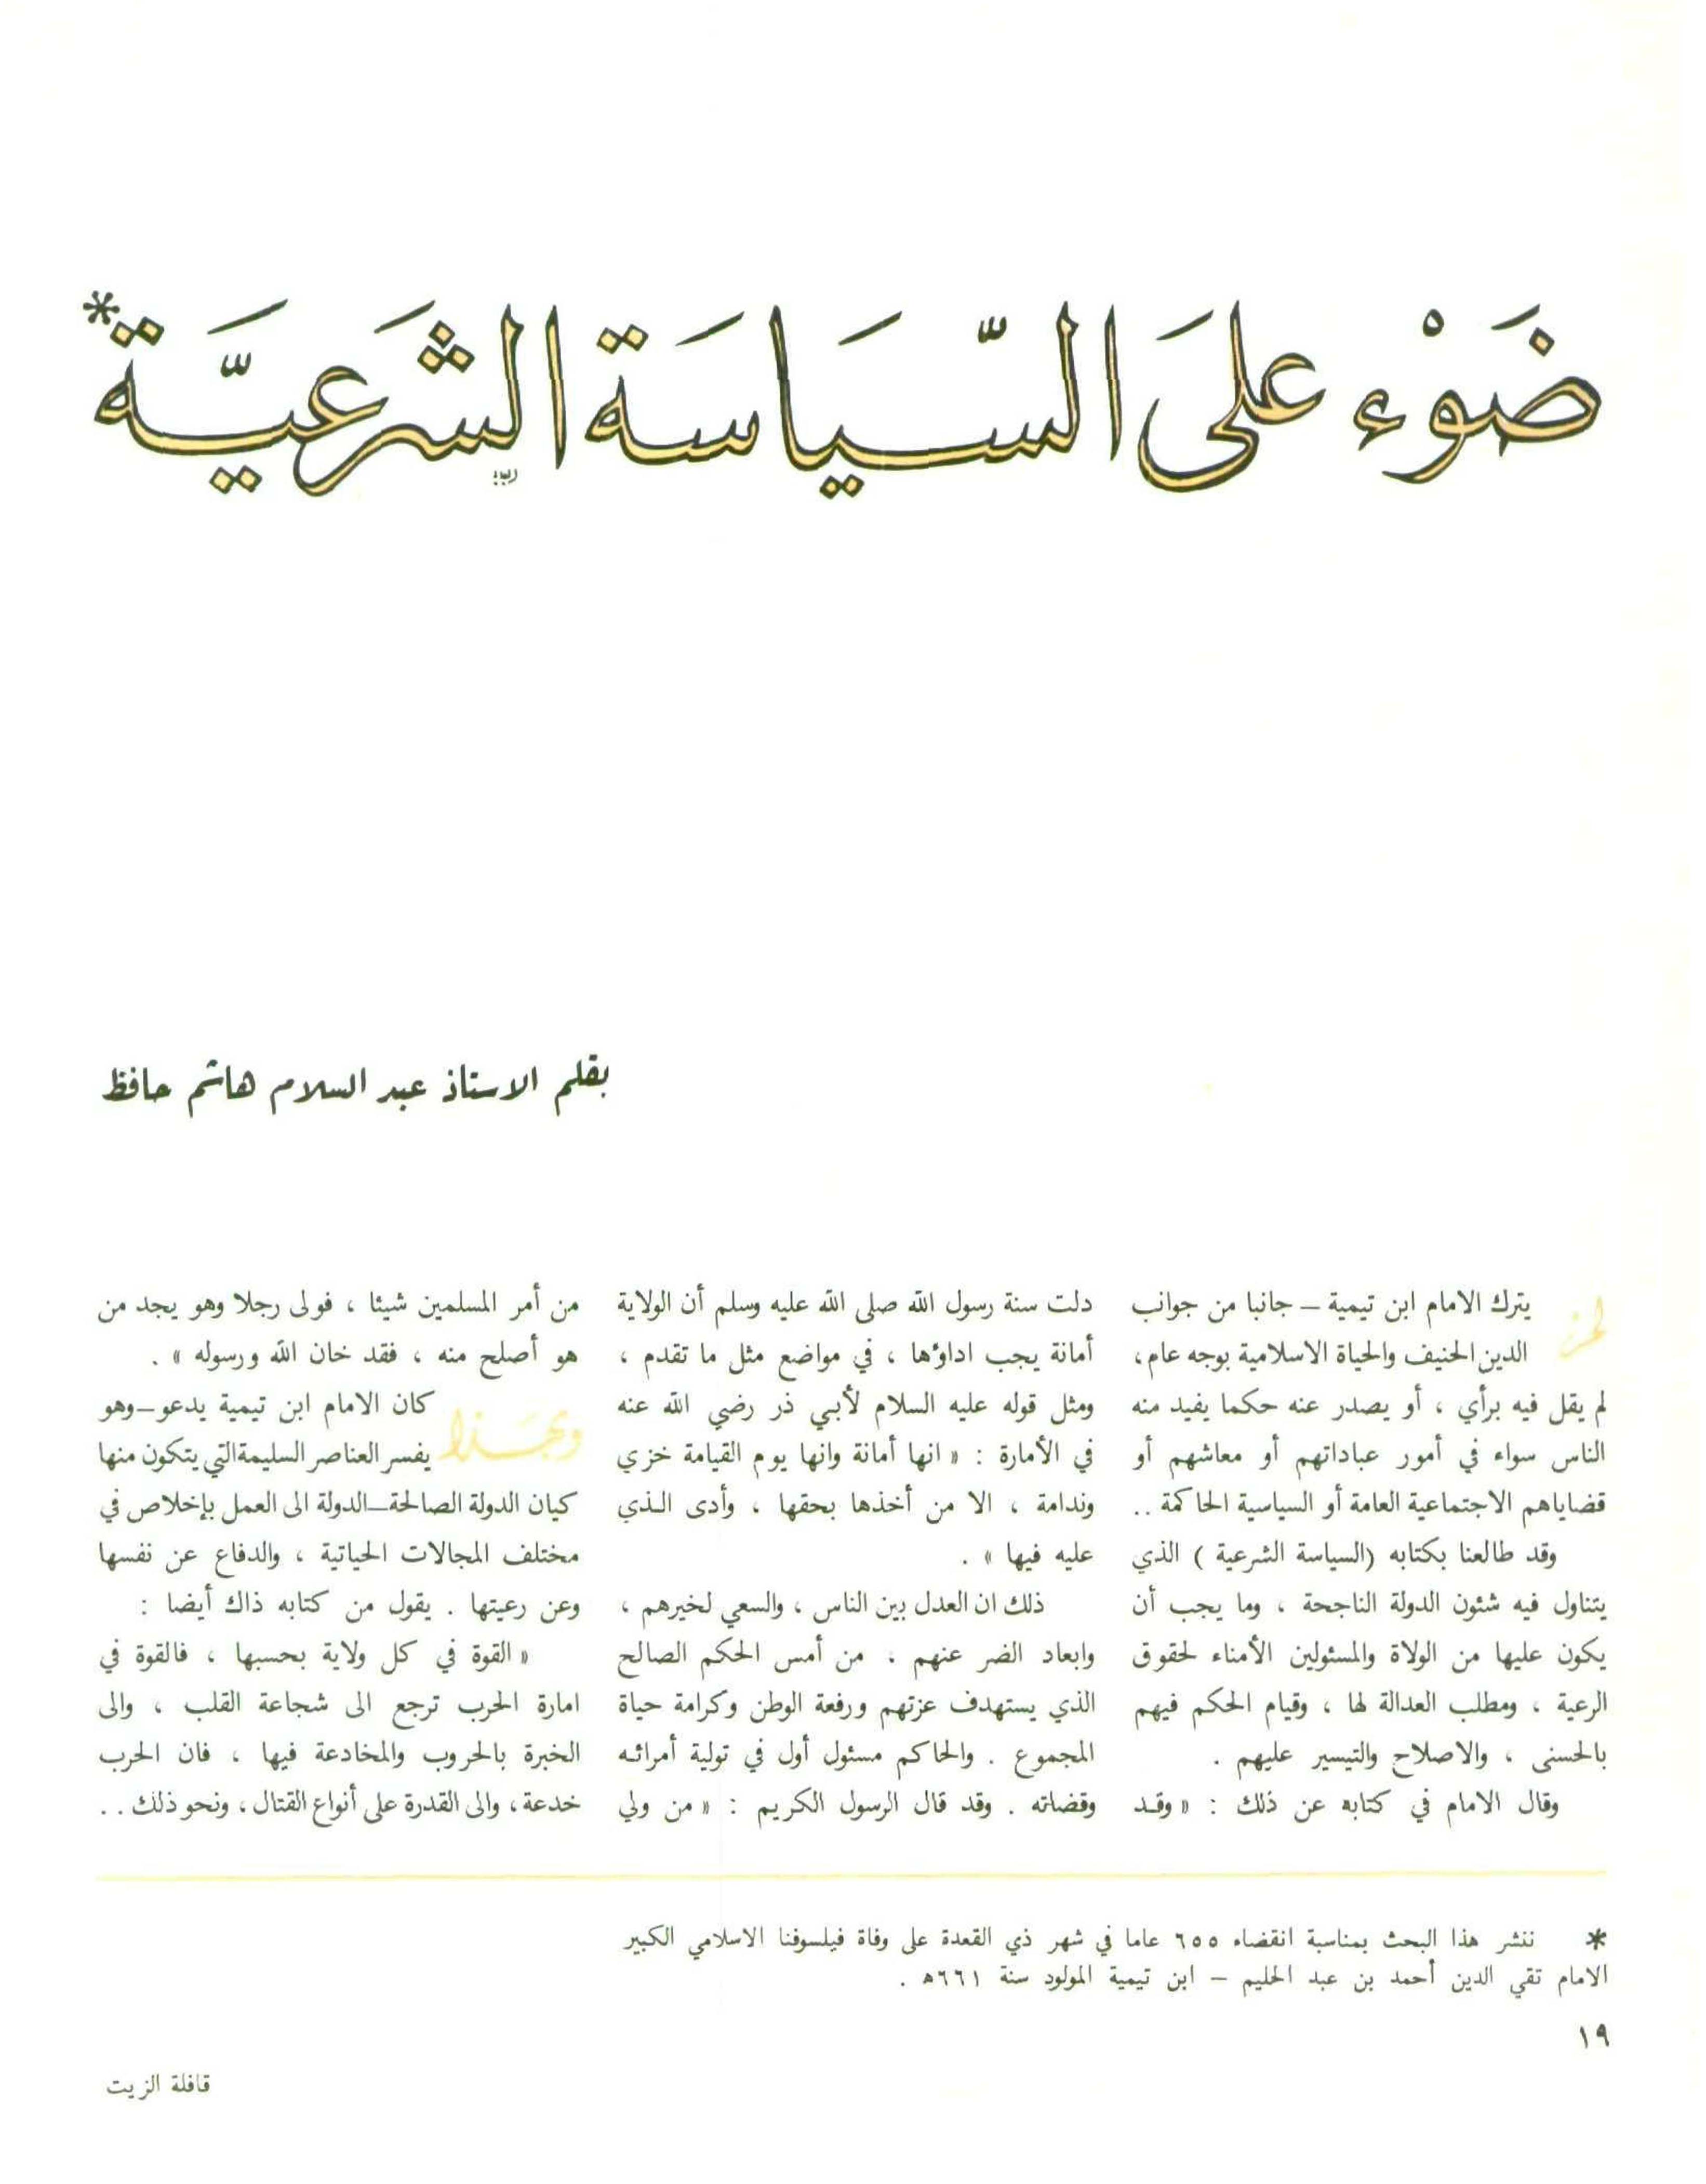 ضَوْء عَلىَ السّيَاسَة الشَرعَيّة*
بقلم الاستاذ عبد السلام هاشم حافظ
لم يترك الامام ابن تيمية – جانبا من جوانب
الدين الحنيف والحياة الاسلامية بوجه عام،
لم يقل فيه برأي ، أو يصدر عنه حكما يفيد منه
الناس سواء في أمور عباداتهم أو معاشهم أو
قضاياهم الاجتماعية العامة أو السياسية الحاكمة ..
وقد طالعنا بكتابه (السياسة الشرعية ) الذي
يتناول فيه شئون الدولة الناجحة ، وما يجب أن
يكون عليها من الولاة والمسئولين الأمناء لحقوق
الرعية ، ومطلب العدالة لها ، وقيام الحكم فيهم
بالحسنى ، والاصلاح والتيسير عليهم .
وقال الامام في كتابه عن ذلك : « وقـد
دلت سنة رسول الله صلى الله عليه وسلم أن الولاية
أمانة يجب اداؤها ، في مواضع مثل ما تقدم ،
ومثل قوله عليه السلام لأبي ذر رضي الله عنه
في الأمارة : « انها أمانة وانها يوم القيامة خزي
وندامة ، الا من أخذها بحقها ، وأدى الـذي
عليه فيها » .
ذلك ان العدل بين الناس ، والسعي لخيرهم ،
وابعاد الضر عنهم ، من أمس الحكم الصالح
الذي يستهدف عزتهم ورفعة الوطن وكرامة حياة
المجموع . والحاكم مسئول أول في تولية أمرائـه
وقضاته . وقد قال الرسول الكريم : « من ولي
من أمر المسلمين شيئا ، فولى رجلا وهو يجد من
هو أصلح منه ، فقد خان الله ورسوله » .
وبهَـذا كان الامام ابن تيمية يدعو–وهو
يفسر العناصر السليمة التي يتكون منها
كيان الدولة الصالحة–الدولة الى العمل بإخلاص في
مختلف المجالات الحياتية ، والدفاع عن نفسها
وعن رعيتها . يقول من كتابه ذاك أيضا :
« القوة في كل ولاية بحسبها ، فالقوة في
امارة الحرب ترجع الى شجاعة القلب ، والى
الخبرة بالحروب والمخادعة فيها ، فان الحرب
خدعة ، والى القدرة على أنواع القتال ، ونحو ذلك ..
* ننشر هذا البحث بمناسبة انقضاء ٦٥٥ عاما في شهر ذي القعدة على وفاة فيلسوفنا الاسلامي الكبير
الامام تقي الدين أحمد بن عبد الحليم – ابن تيمية المولود سنة ٦٦١ه .
١٩
قافلة الزيت